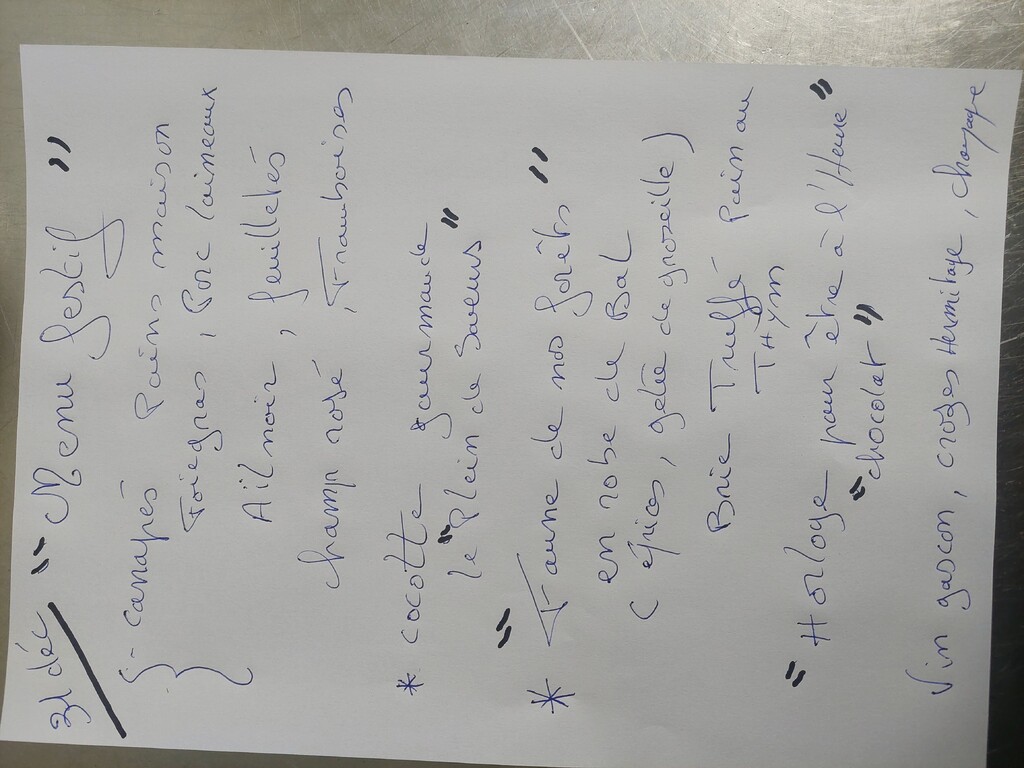 31 déc " Menu festif "
- canapés Pains maison
Foie gras, Porc laineux
Aïl noir, feuilletés
champ rosé, Framboises
* cocotte gourmande
le "Plein de Saveurs"
* " Faune de nos forêts "
en robe de Bal
( épices, gelée de groseille )
Brie Truffé Pain au
THym
" Horloge pour être à l'Heure "
"chocolat"
Vin gascon, crozes Hermitage, champagne